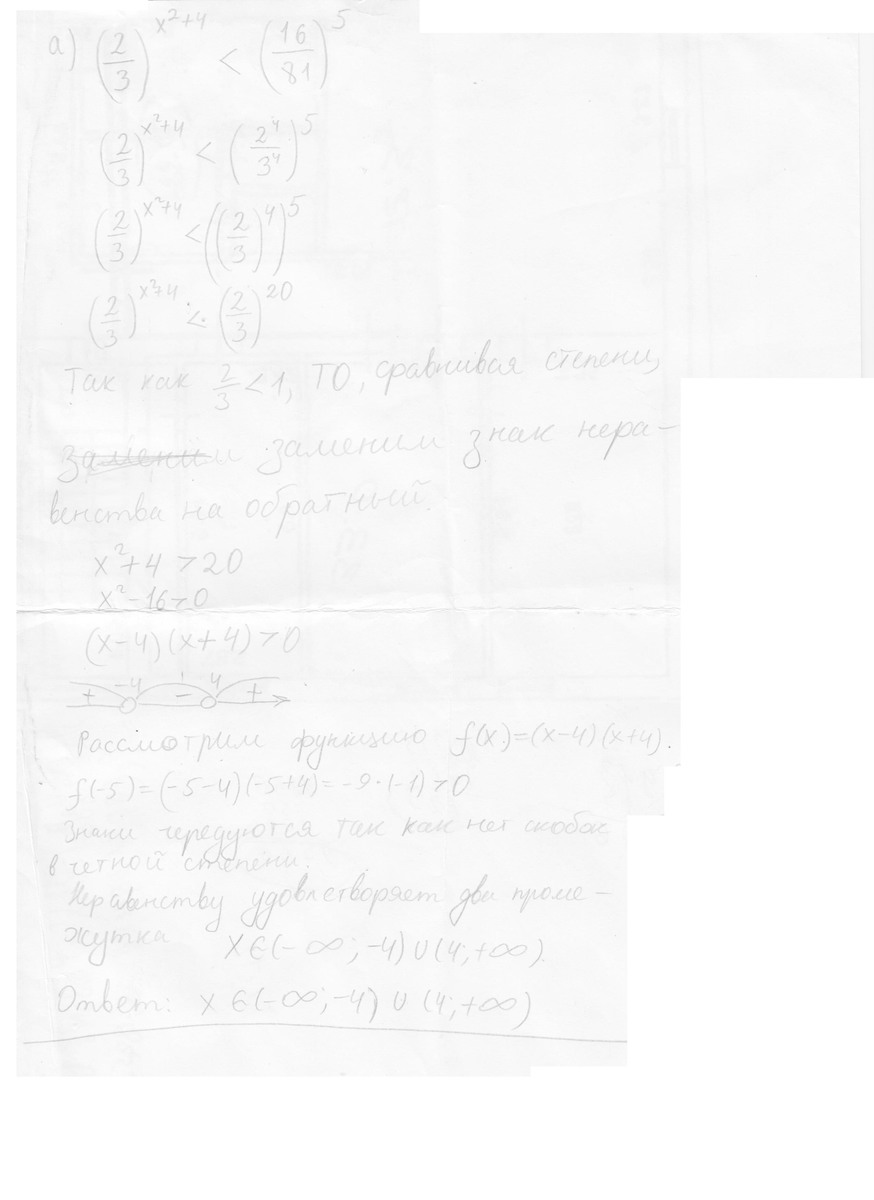 а) (2/3)^(x²+4) < (16/81)^5
(2/3)^(x²+4) < (2⁴/3⁴)^5
(2/3)^(x²+4) < ((2/3)^4)^5
(2/3)^(x²+4) < (2/3)^20
Так как 2/3 < 1, ТО, сравнивая степени,
заменим знак нера-
венства на обратный.
x²+4 > 20
x²-16 > 0
(x-4)(x+4) > 0
+ -4 - 4 +
Рассмотрим функцию f(x)=(x-4)(x+4).
f(-5)=(-5-4)(-5+4)=-9·(-1)>0
Знаки чередуются так как нет скобок
в четной степени.
Неравенству удовлетворяет два проме-
жутка x∈(-∞;-4)∪(4;+∞).
Ответ: x∈(-∞;-4)∪(4;+∞)